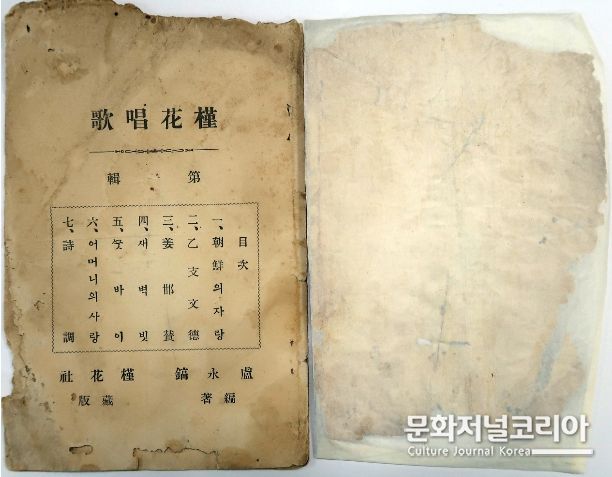 槿花唱歌
第 輯
目次
一、朝鮮의자랑
二、乙支文德
三、姜邯賛
四、새벽빗
五、
六、어머니의사랑
七、詩調
盧永鎬 編著
槿花社 藏版
문화저널코리아
Culture Journal Korea